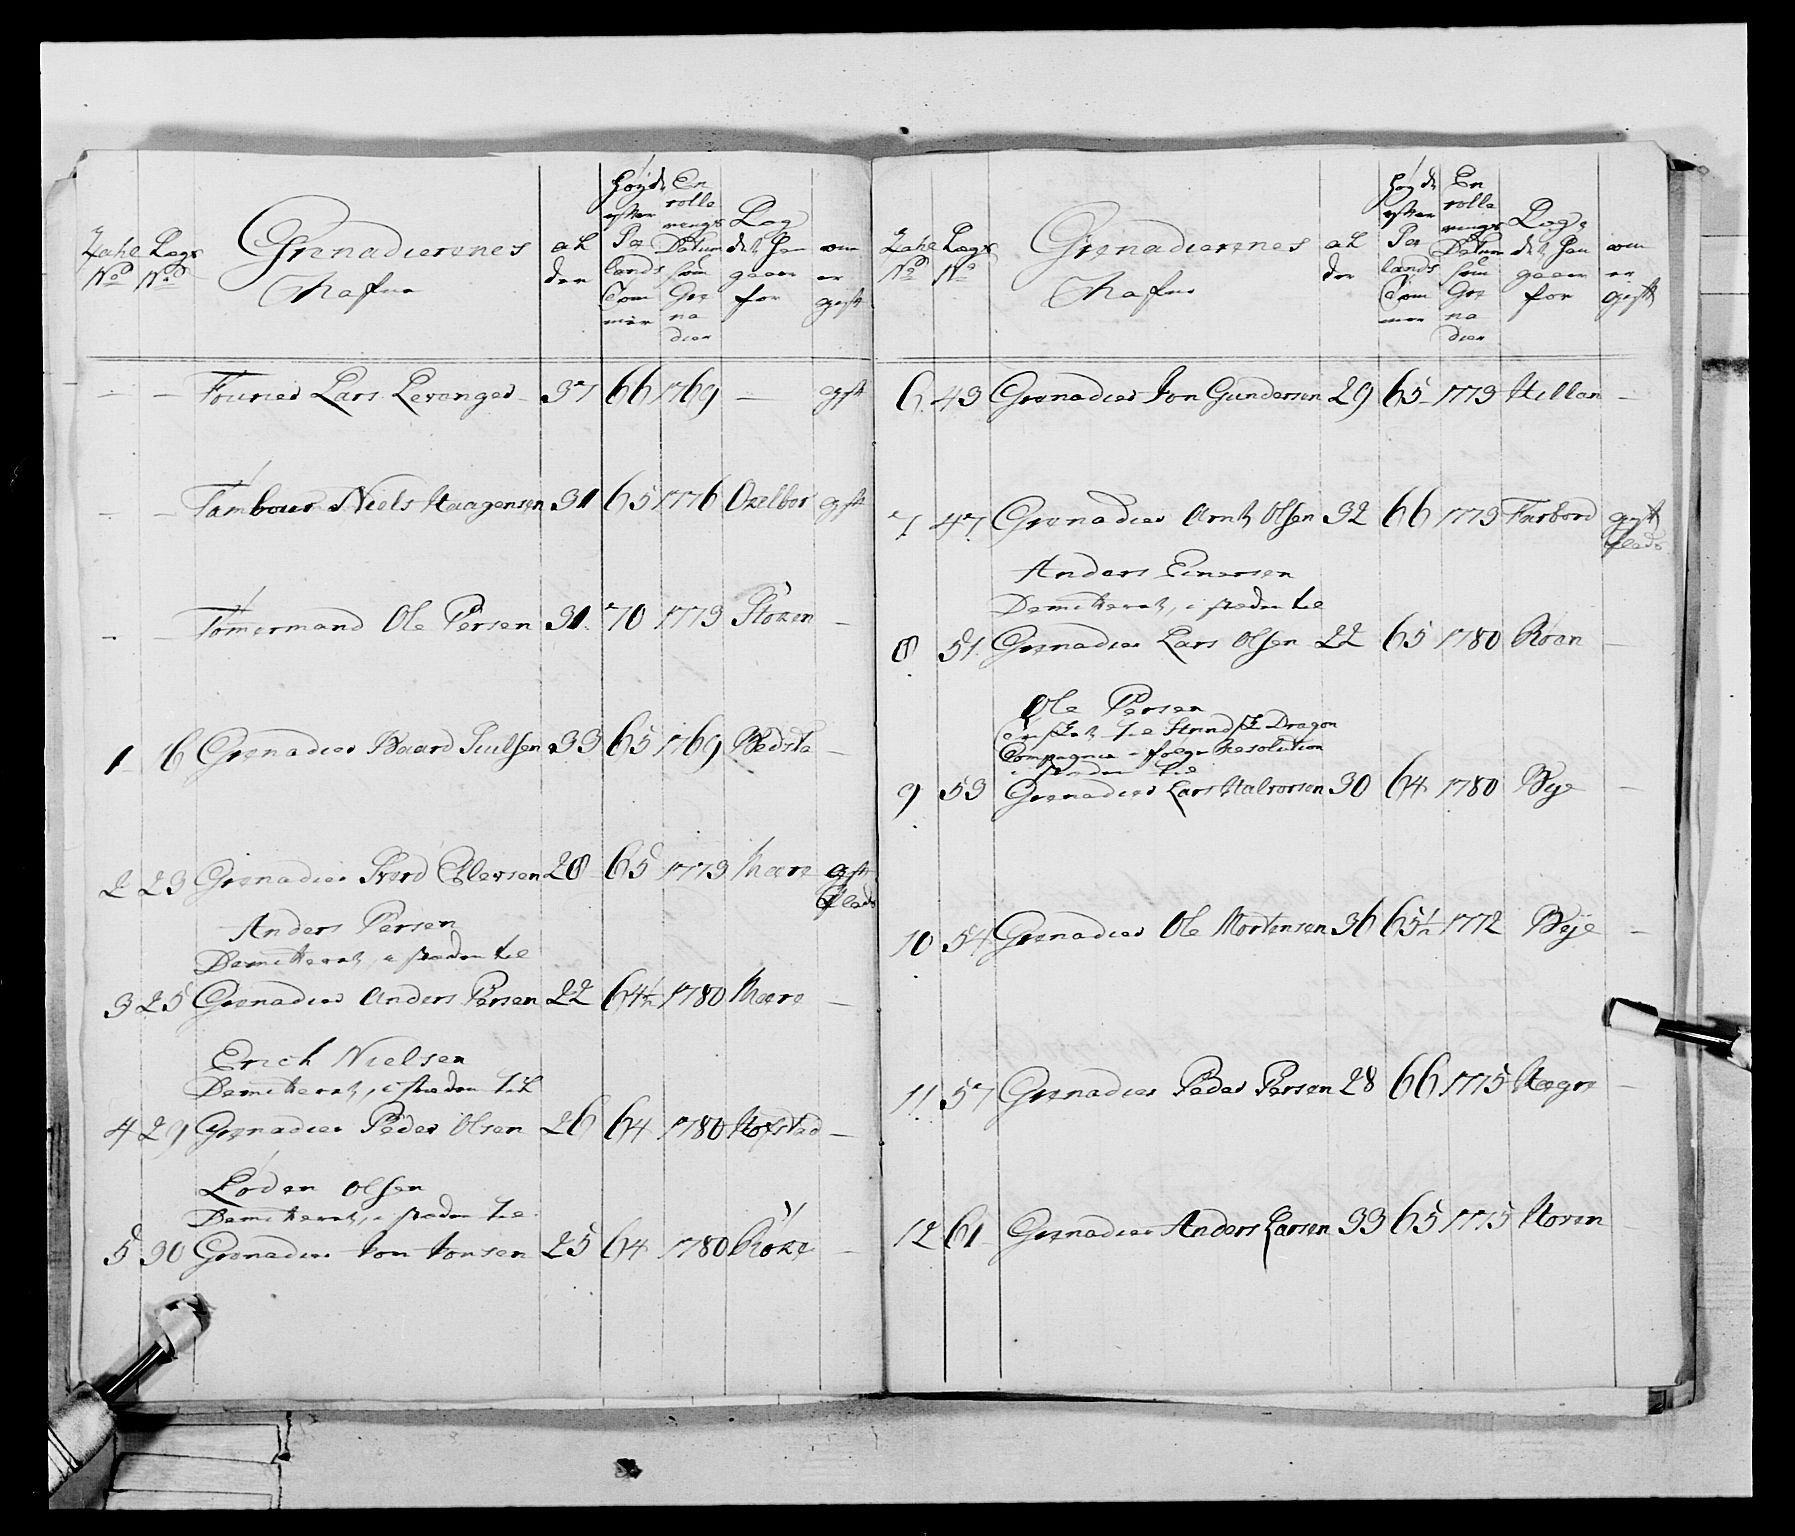 Zahl No
Lægs No
Grenadierenes Nafne
al der
høyde efter Sælands Tommer
En rollerings Datum som Grenadier
Læg det han gaaer for
om er gift
— — Fourier Lars Levanger 37 66 1769 — gift
— — Tambour Niels Haagensen 31 65 1776 Oxelbor gift
— — Tømermand Ole Persen 31 70 1773 Stoxen —
1 6 Grenadier Baard Pulsen 33 65 1769 Bedsta —
2 23 Grenadier Siverd Ellevsen 28 65 1773 Mære gift
Plads
Anders Persen
Demitterat, i steden til
3 25 Grenadier Anders Persen 22 64½ 1780 Mære —
Erich Nielsen
Demitterat, i steden til
4 29 Grenadier Peder Olsen 26 64 1780 Hofstad —
Loden Olsen
Demitterat, i steden til
5 30 Grenadier Jon Jonsen 25 64 1780 Røke —
Zahl No
Lægs No
Grenadierenes Nafne
al der
høyde efter Sælands Tommer
En rollerings Datum som Grenadier
Læg det han gaaer for
om er gift
6 43 Grenadier Jon Gundersen 29 65 1773 Hillan —
7 47 Grenadier Arnt Olsen 32 66 1773 Farbord gift
Plads
Anders Einersen
Demitterat, i steden til
8 51 Grenadier Lars Olsen 22 65 1780 Roan —
Ole Persen
til Dragon
Compagnie i følge Resolution
i steden til
9 53 Grenadier Lars Halvorsen 30 64 1780 Bye —
10 54 Grenadier Ole Mortensen 36 65½ 1772 Beje —
11 57 Grenadier Peder Persen 28 66 1775 Hegre —
12 61 Grenadier Anders Larsen 33 65 1775 Hoven